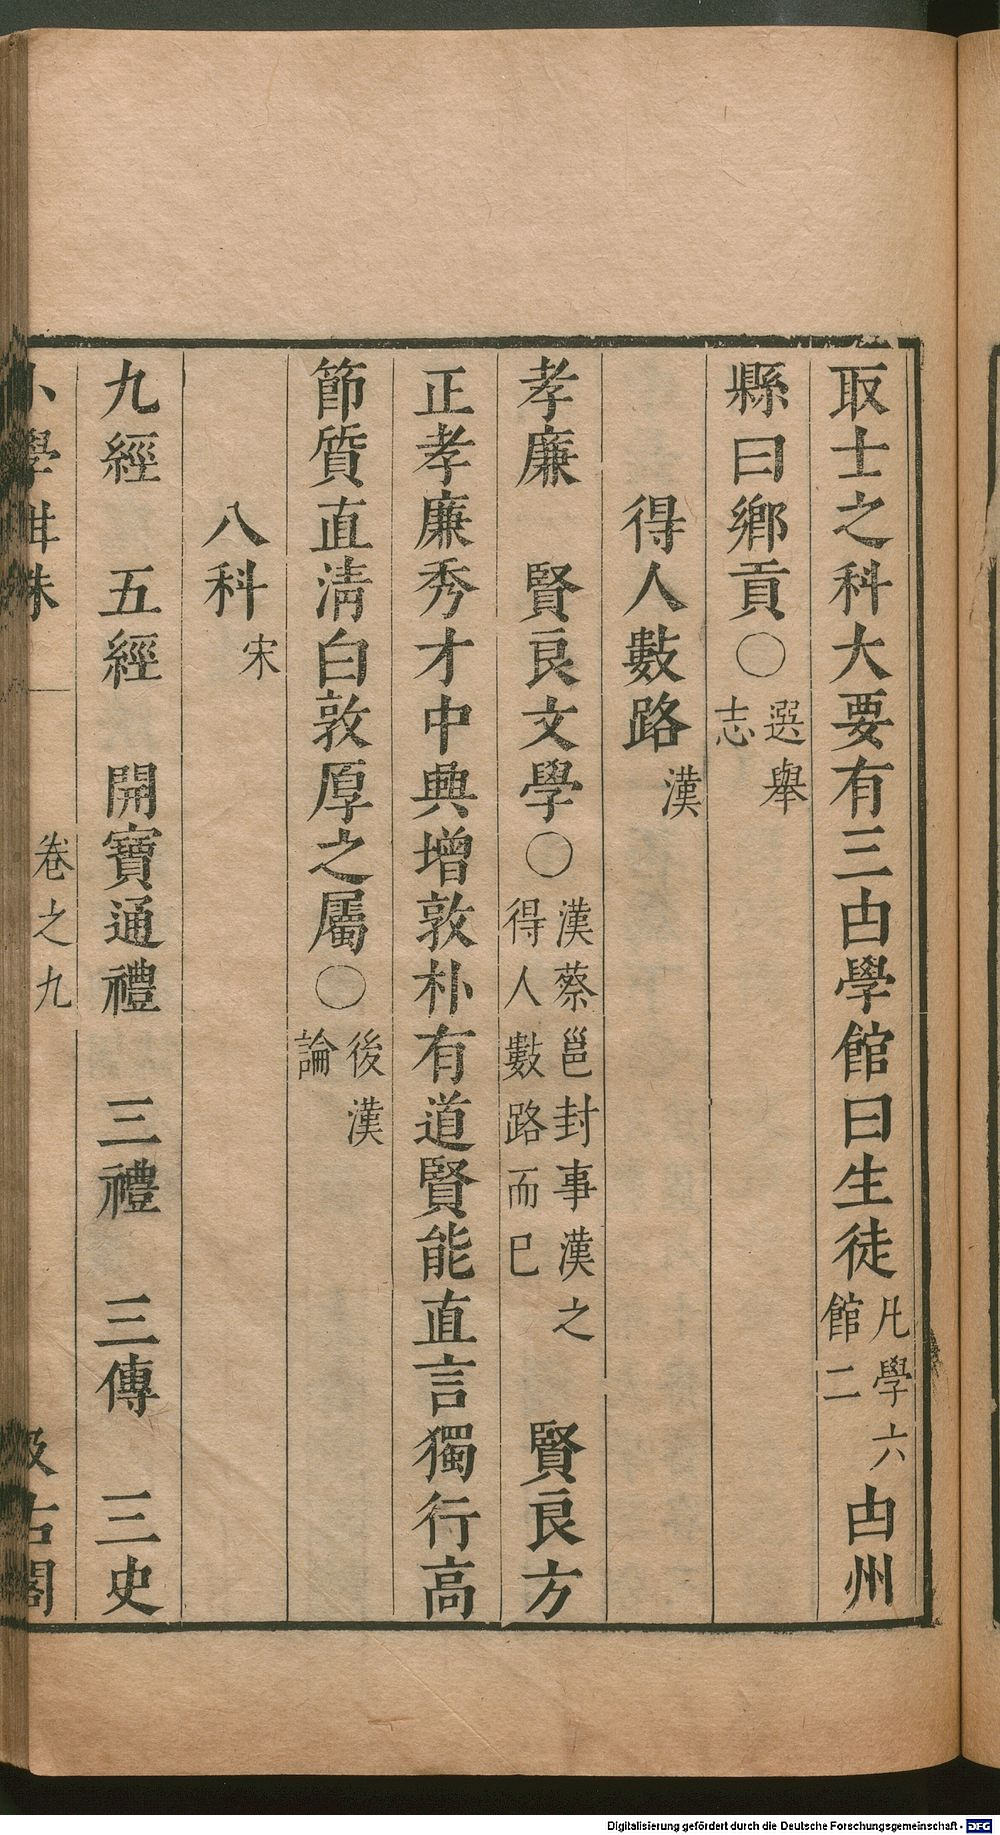 取士之科大要有三甴學館曰生徒凡學六館二甴州
縣曰鄉貢○選舉志
得人數路漢
孝廉　賢良文學○漢蔡邕封事漢之得人數路而已　賢良方
正孝廉秀才中興增敦朴有道賢能直言獨行高
節質直清白敦厚之屬○後漢論
八科宋
九經　五經　開寶通禮　三禮　三傳　三史
小學紺珠　卷之九　汲古閣
Digitalisierung gefördert durch die Deutsche Forschungsgemeinschaft - DFG